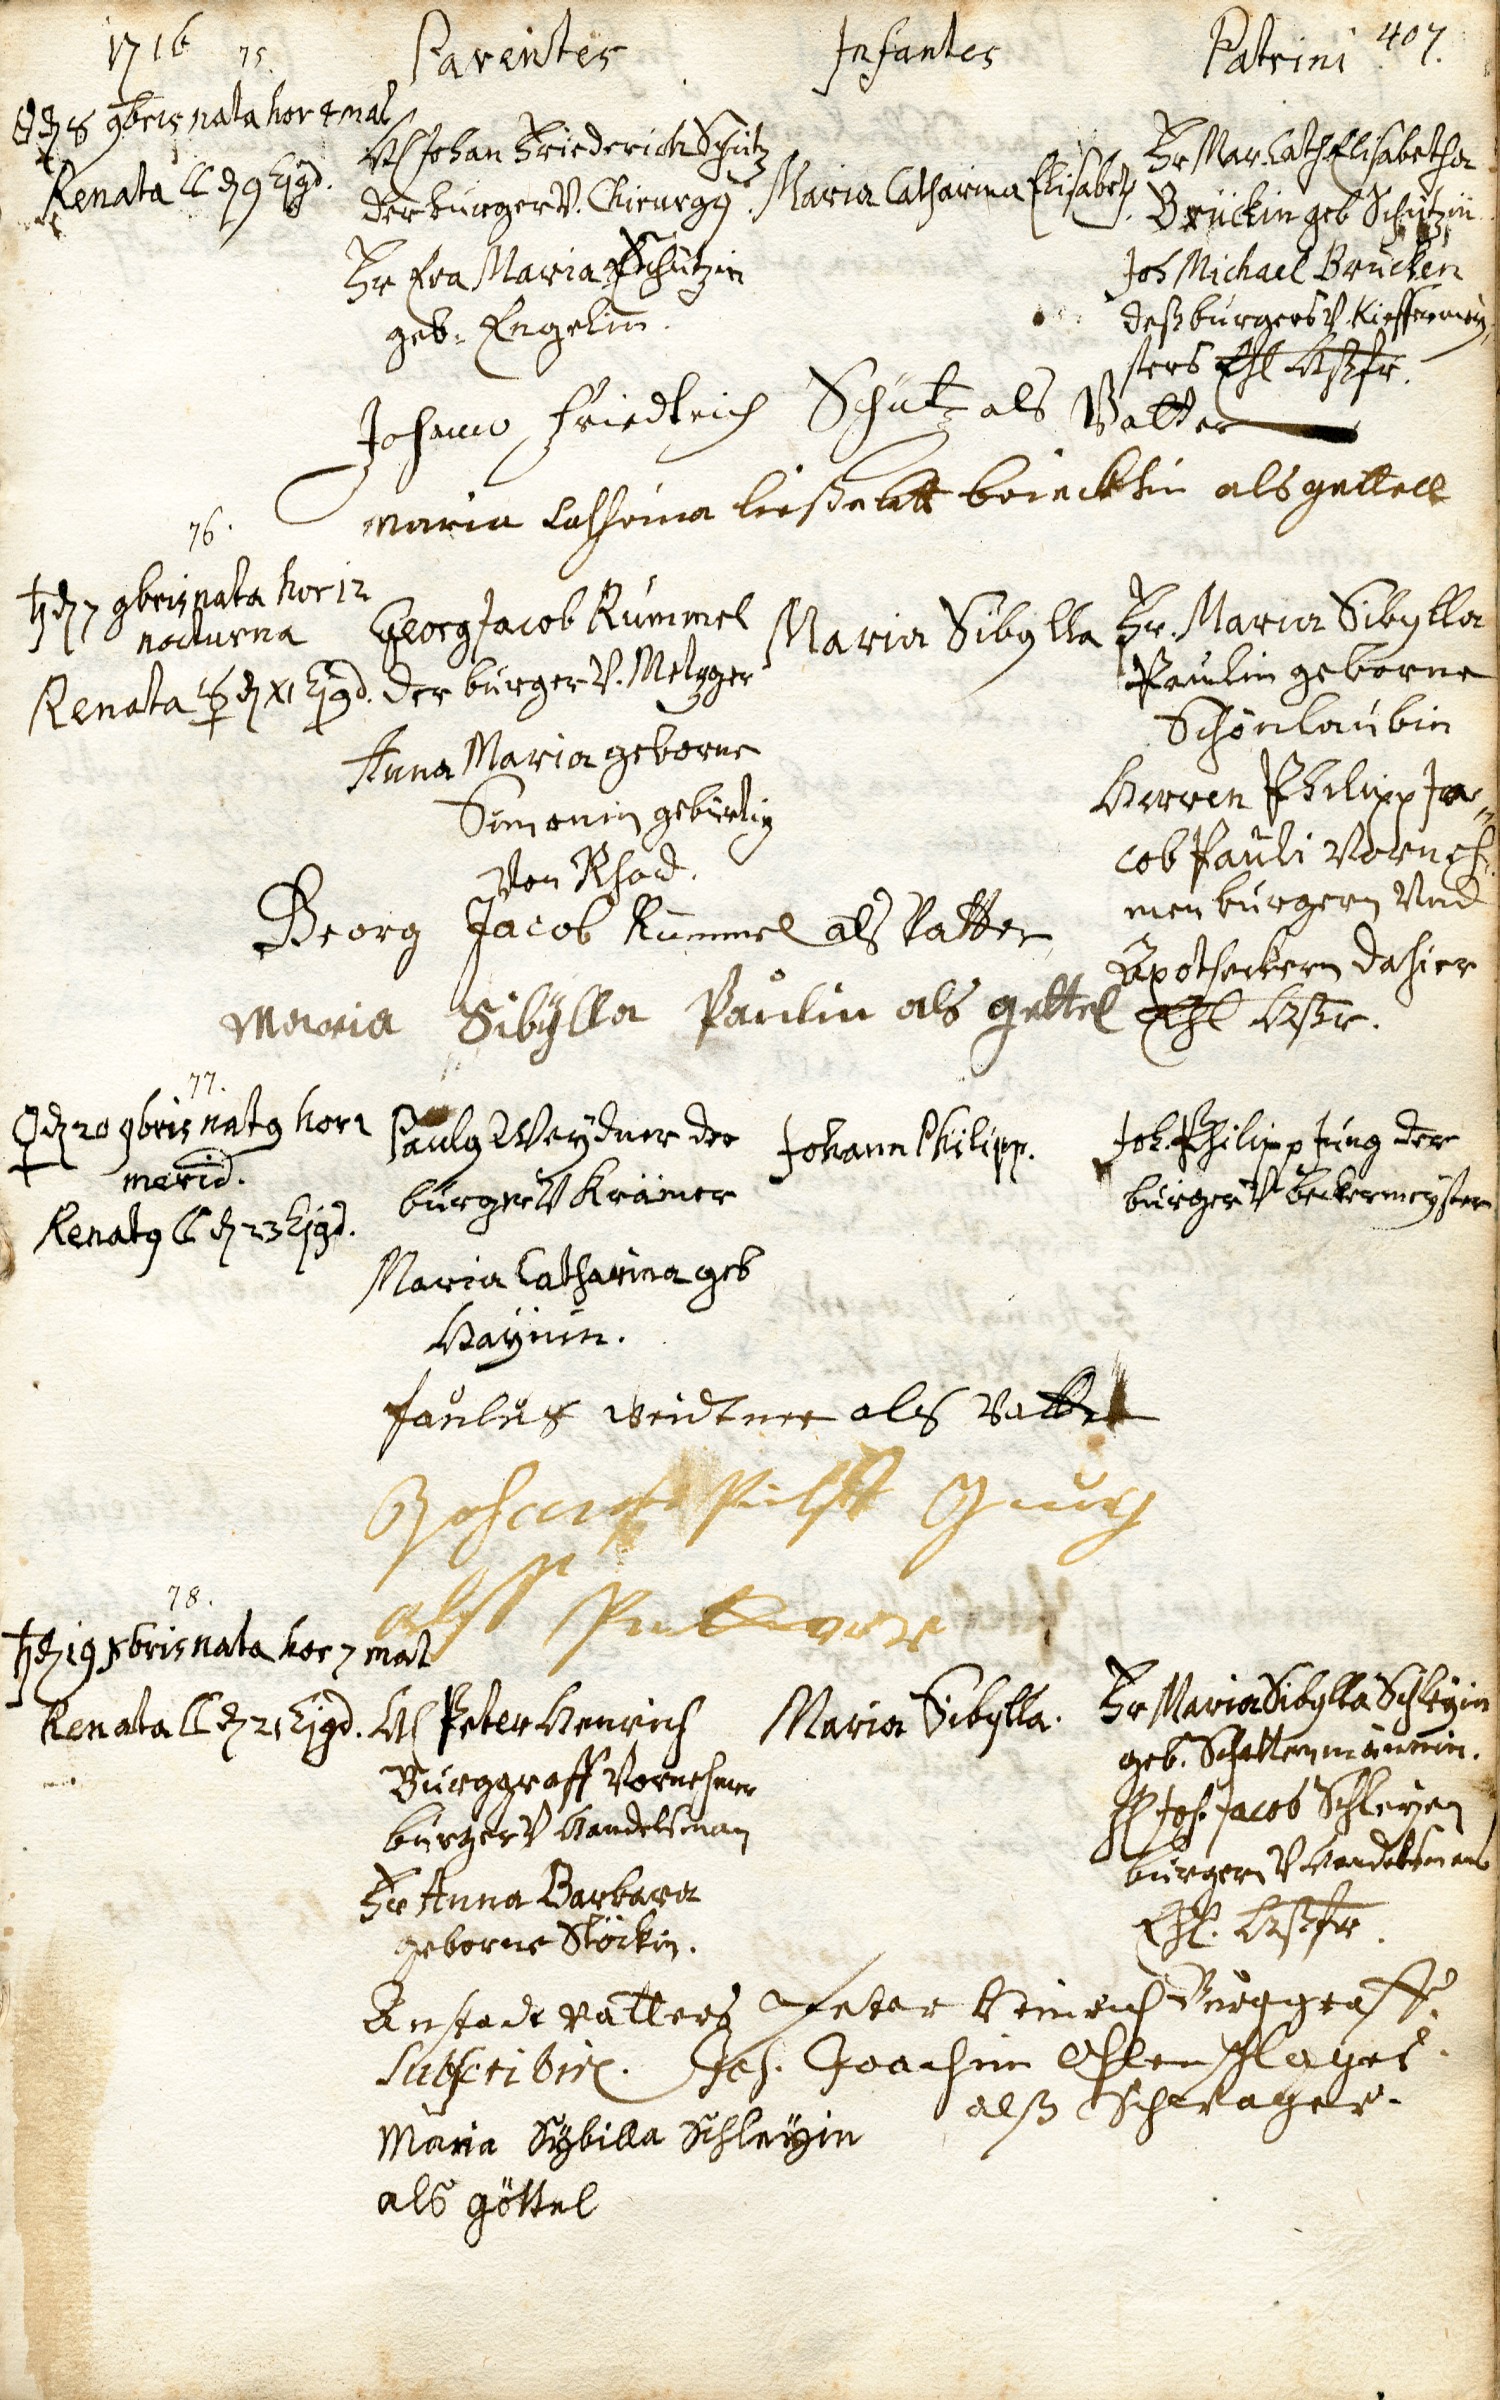 1716
Parentes
Infantes
Patrini
407.
75.
☉ d 8 9bris nata hor 4 mat
Renata ☾ d 9 ejgd.
H Johan Friederich Schütz
der burger V. Chirurgg
Fr Eva Maria Schützin
geb. Engelin.
Maria Catharina Elisabeth.
Fr Mar Cath Elisabetha
Brückin geb Schützin
Joh Michael Brücken
deß burgers V. Kieffermey,
sters Ehl Haußfr.
Johann Friedrich Schütz als Vatter
maria Cathrina ließabett brückhin als gettell
76.
♄ d 7 9bris nata hor 12
nocturna
Renata ☿ d XI ejgd.
Georg Jacob Rummel
der burger V. Metzger
Anna Maria geborne
Simonin gebürtig
Von Rhod.
Maria Sibylla
Fr. Maria Sibylla
Paulin geborne
Schönlaubin
Herren Philipp Ja=
cob Pauli Vorneh.
men burgern Vnd
Apotheckern dahier
Ehl Haußfr.
Georg Jacob Rummel als Vatter
Maria Sibÿlla Paulin als gettel
77.
♀ d 20 9bris natg hor 1
merid.
Renatg ☾ d 23 ejgd.
Paulg Weydner der
burger V Krämer
Maria Catharina geb
Haÿnin.
Johann Philipp.
Joh. Philipp Jung der
burger V beckermeyster
Paulus weidtner als Vatter
78.
♄ d 19 Xbris nata hor 7 mat
Renata ☾ d 21 ejgd.
H Peter Henrich
Burggraff Vornehmer
burger V Handelsman
Fr Anna Barbara
geborne Stöckin.
Maria Sibylla.
Fr Maria Sibylla Schleyin
geb. Schattenmännin.
H Joh. Jacob Schleyen
burgern V Handelsmans
Ehl. Haußfr.
Anstadt vatters Peter Heinrich Burggraff
subscribire. Joh. Joachim Ohlenschlager
alß Schwager.
Maria Sÿbilla Schleÿin
als göttel